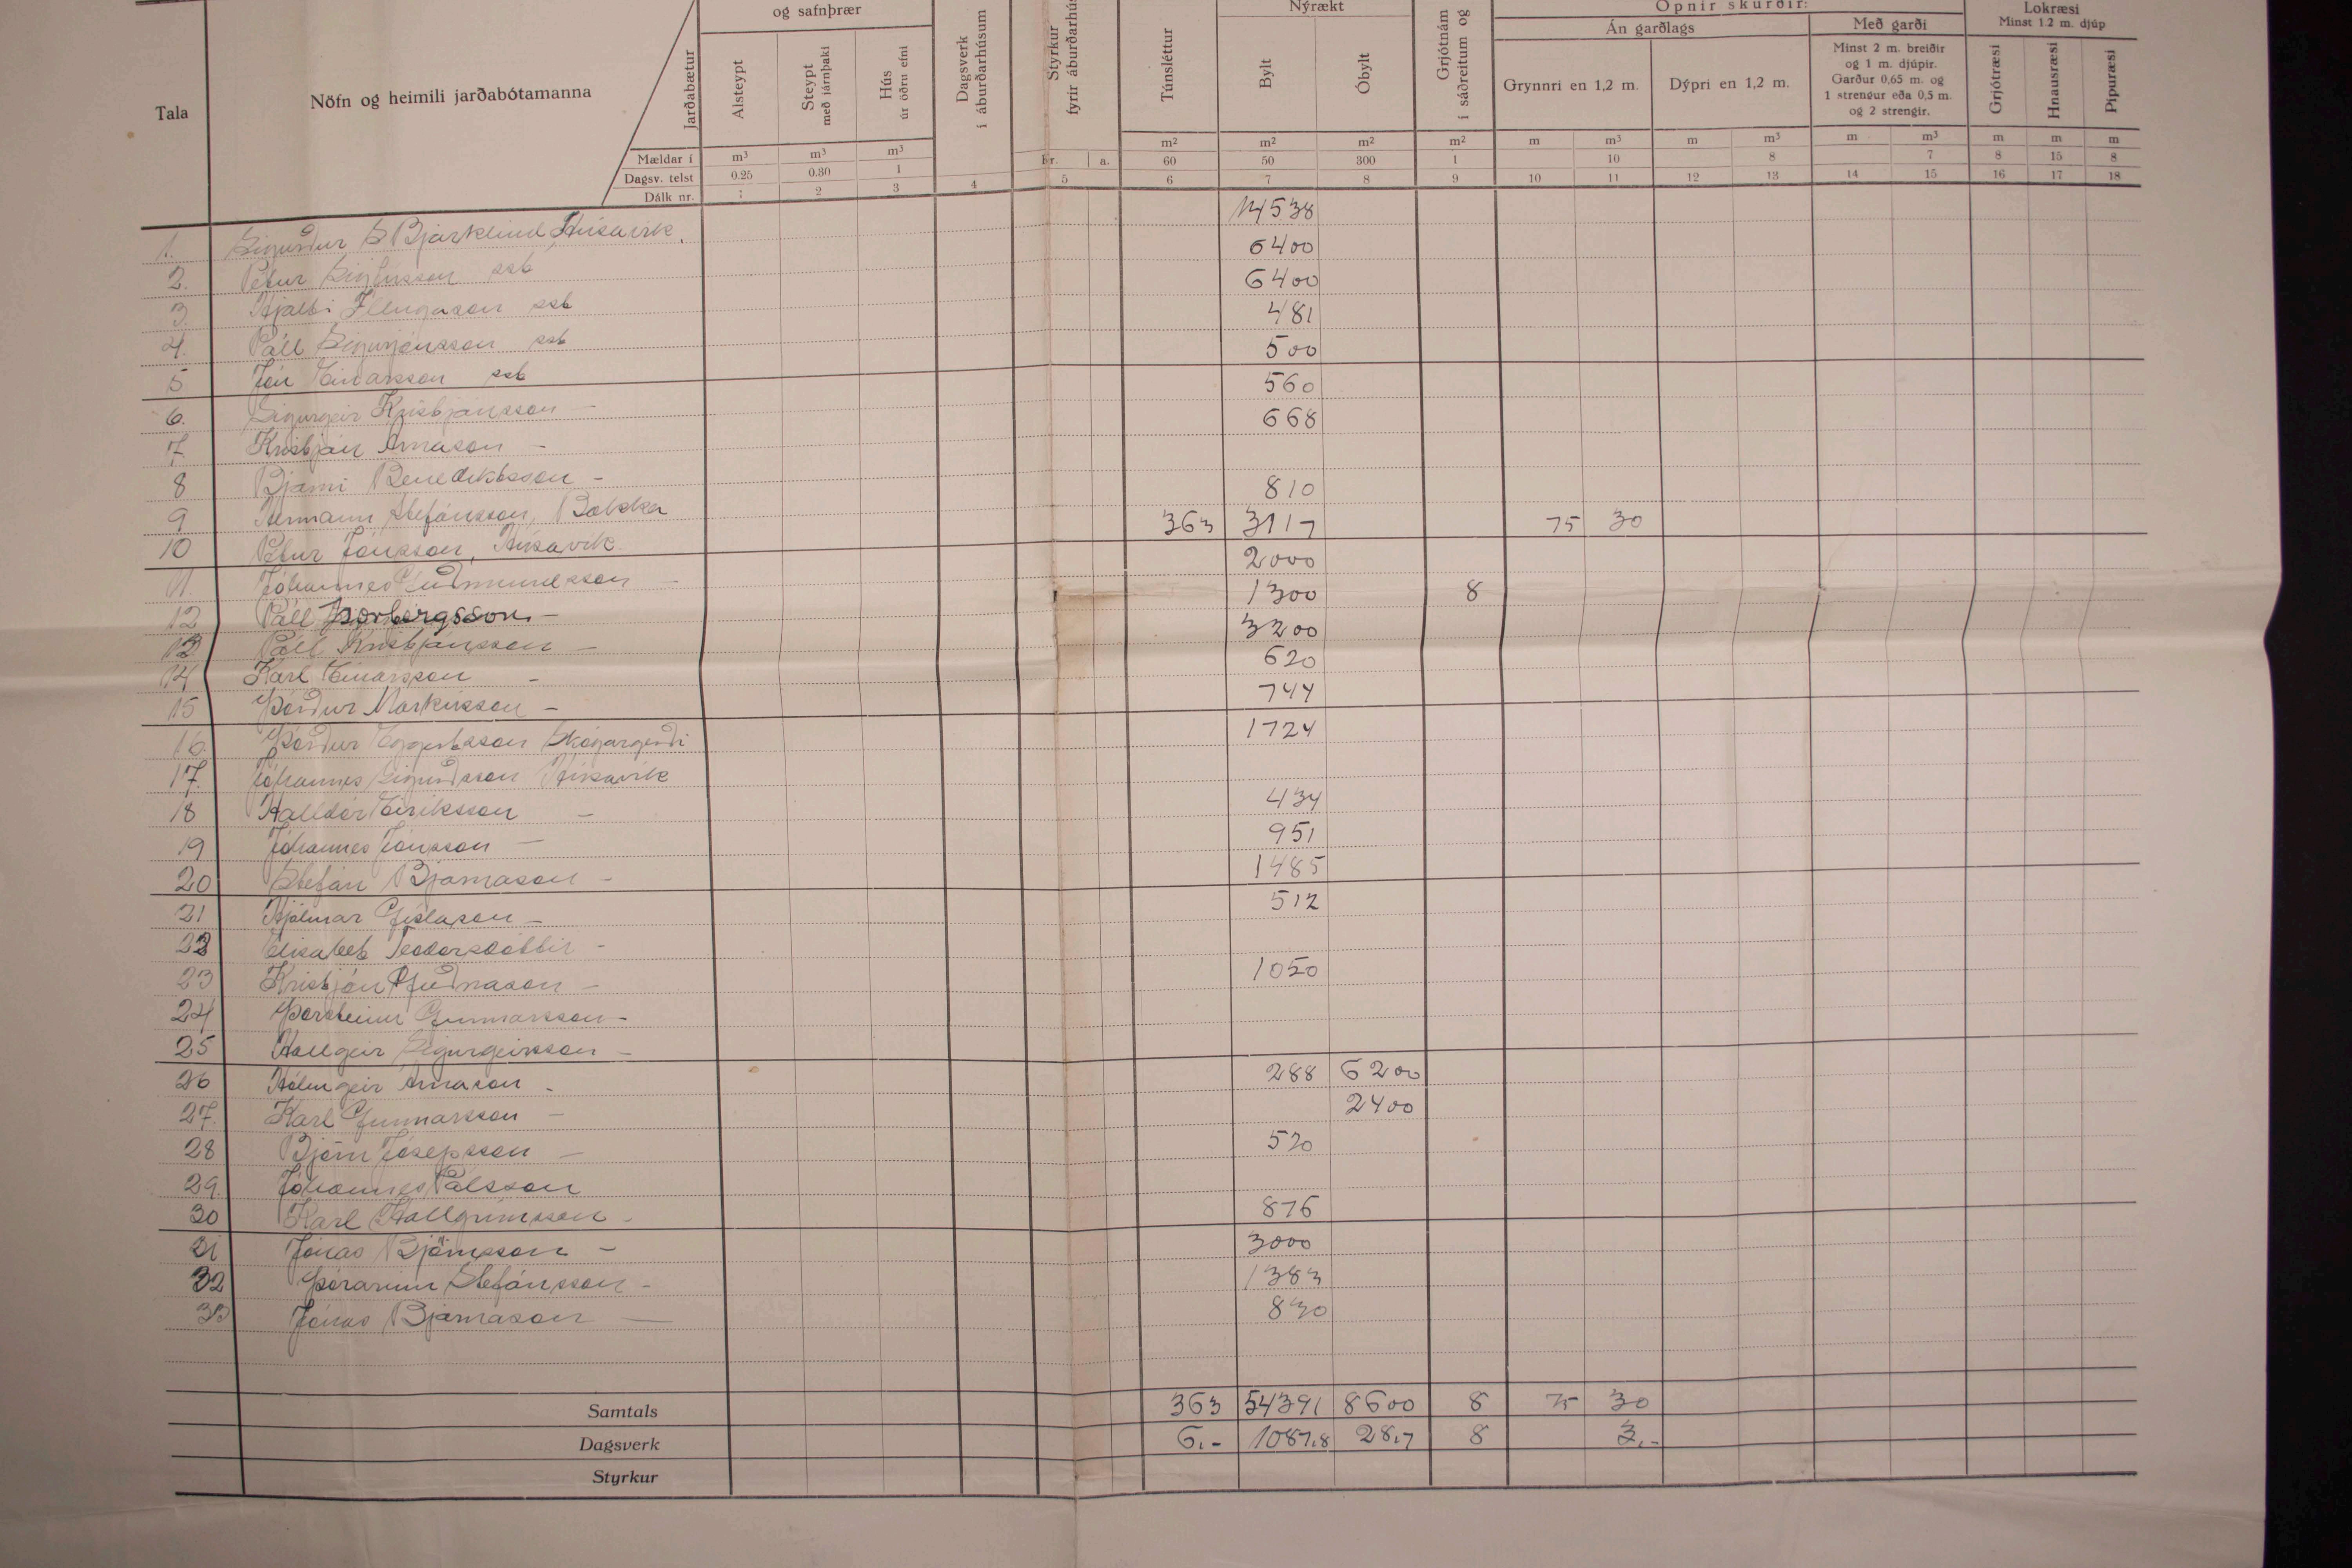 og safnþrær Nýrækt Opnir skurðir: Lokræsi
Án garðlags Með garði Minst 1.2 m. djúp
Tala Nöfn og heimili jarðabótamanna Jarðabætur Alsteypt Steypt með járnþaki Hús úr öðru efni Dagsverk í áburðarhúsum Styrkur fyrir áburðarhús Túnsléttur Bylt Óbylt Grjótnám í sáðreitum og Grynnri en 1,2 m. Dýpri en 1,2 m. Minst 2 m. breiðir og 1 m. djúpir. Garður 0,65 m. og 1 strengur eða 0,5 m. og 2 strengir. Grjótræsi Hnausræsi Pípuræsi
Mældar í m³ m³ m³ kr. a. m² m² m² m² m m³ m m³ m m³ m m m
Dagsv. telst 0.25 0.30 1 60 50 300 1 10 8 7 8 15 8
Dálk nr. 1 2 3 4 5 6 7 8 9 10 11 12 13 14 15 16 17 18
1. Sigurður S Bjarklind Húsavík. 14538
2. Pétur Sigfússon sst 6400
3. Hjalti Illugason sst 6400
4. Páll Sigurjónsson sst 481
5 Jón Einarsson sst 500
6. Sigurgeir Kristjánsson — 560
7. Kristján Árnason — 668
8 Bjarni Benediktsson —
9 Hermann Stefánsson, Bakka 810
10 Pétur Jónsson, Húsavík 363 3117 75 30
11. Jóhannes Guðmundsson — 2000
12 Páll Þorbergsson — 1300 8
13 Páll Kristjánsson — 3200
14 Karl Einarsson — 620
15 Þórður Markússon — 744
16. Þórður Eggertsson Skógargerði 1724
17. Jóhannes Sigurðsson Húsavík
18 Halldór Eiríksson — 434
19 Jóhannes Jónsson — 951
20 Stefán Bjarnason — 1485
21 Hjálmar Gíslason — 512
22 Elísabet Teodorsdóttir —
23 Kristján Guðnason — 1050
24 Þorsteinn Gunnarsson —
25 Hallgeir Sigurgeirsson —
26 Hólmgeir Árnason — 288 6200
27. Karl Gunnarsson — 2400
28 Björn Jósepsson — 520
29. Jóhannes Pálsson
30 Karl Hallgrímsson — 876
31 Jónas Björnsson — 3000
32 Þórarinn Stefánsson — 1383
33 Jónas Bjarnason — 830
Samtals 363 54391 8600 8 75 30
Dagsverk 6.- 1087.8 28.7 8 3.-
Styrkur